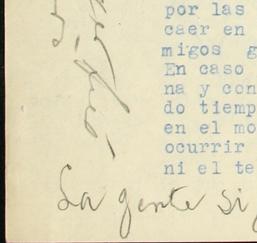 por las
caer en
migos g
En caso
na y con
do tiemp
en el mo
ocurrir
ni el te
La gente si